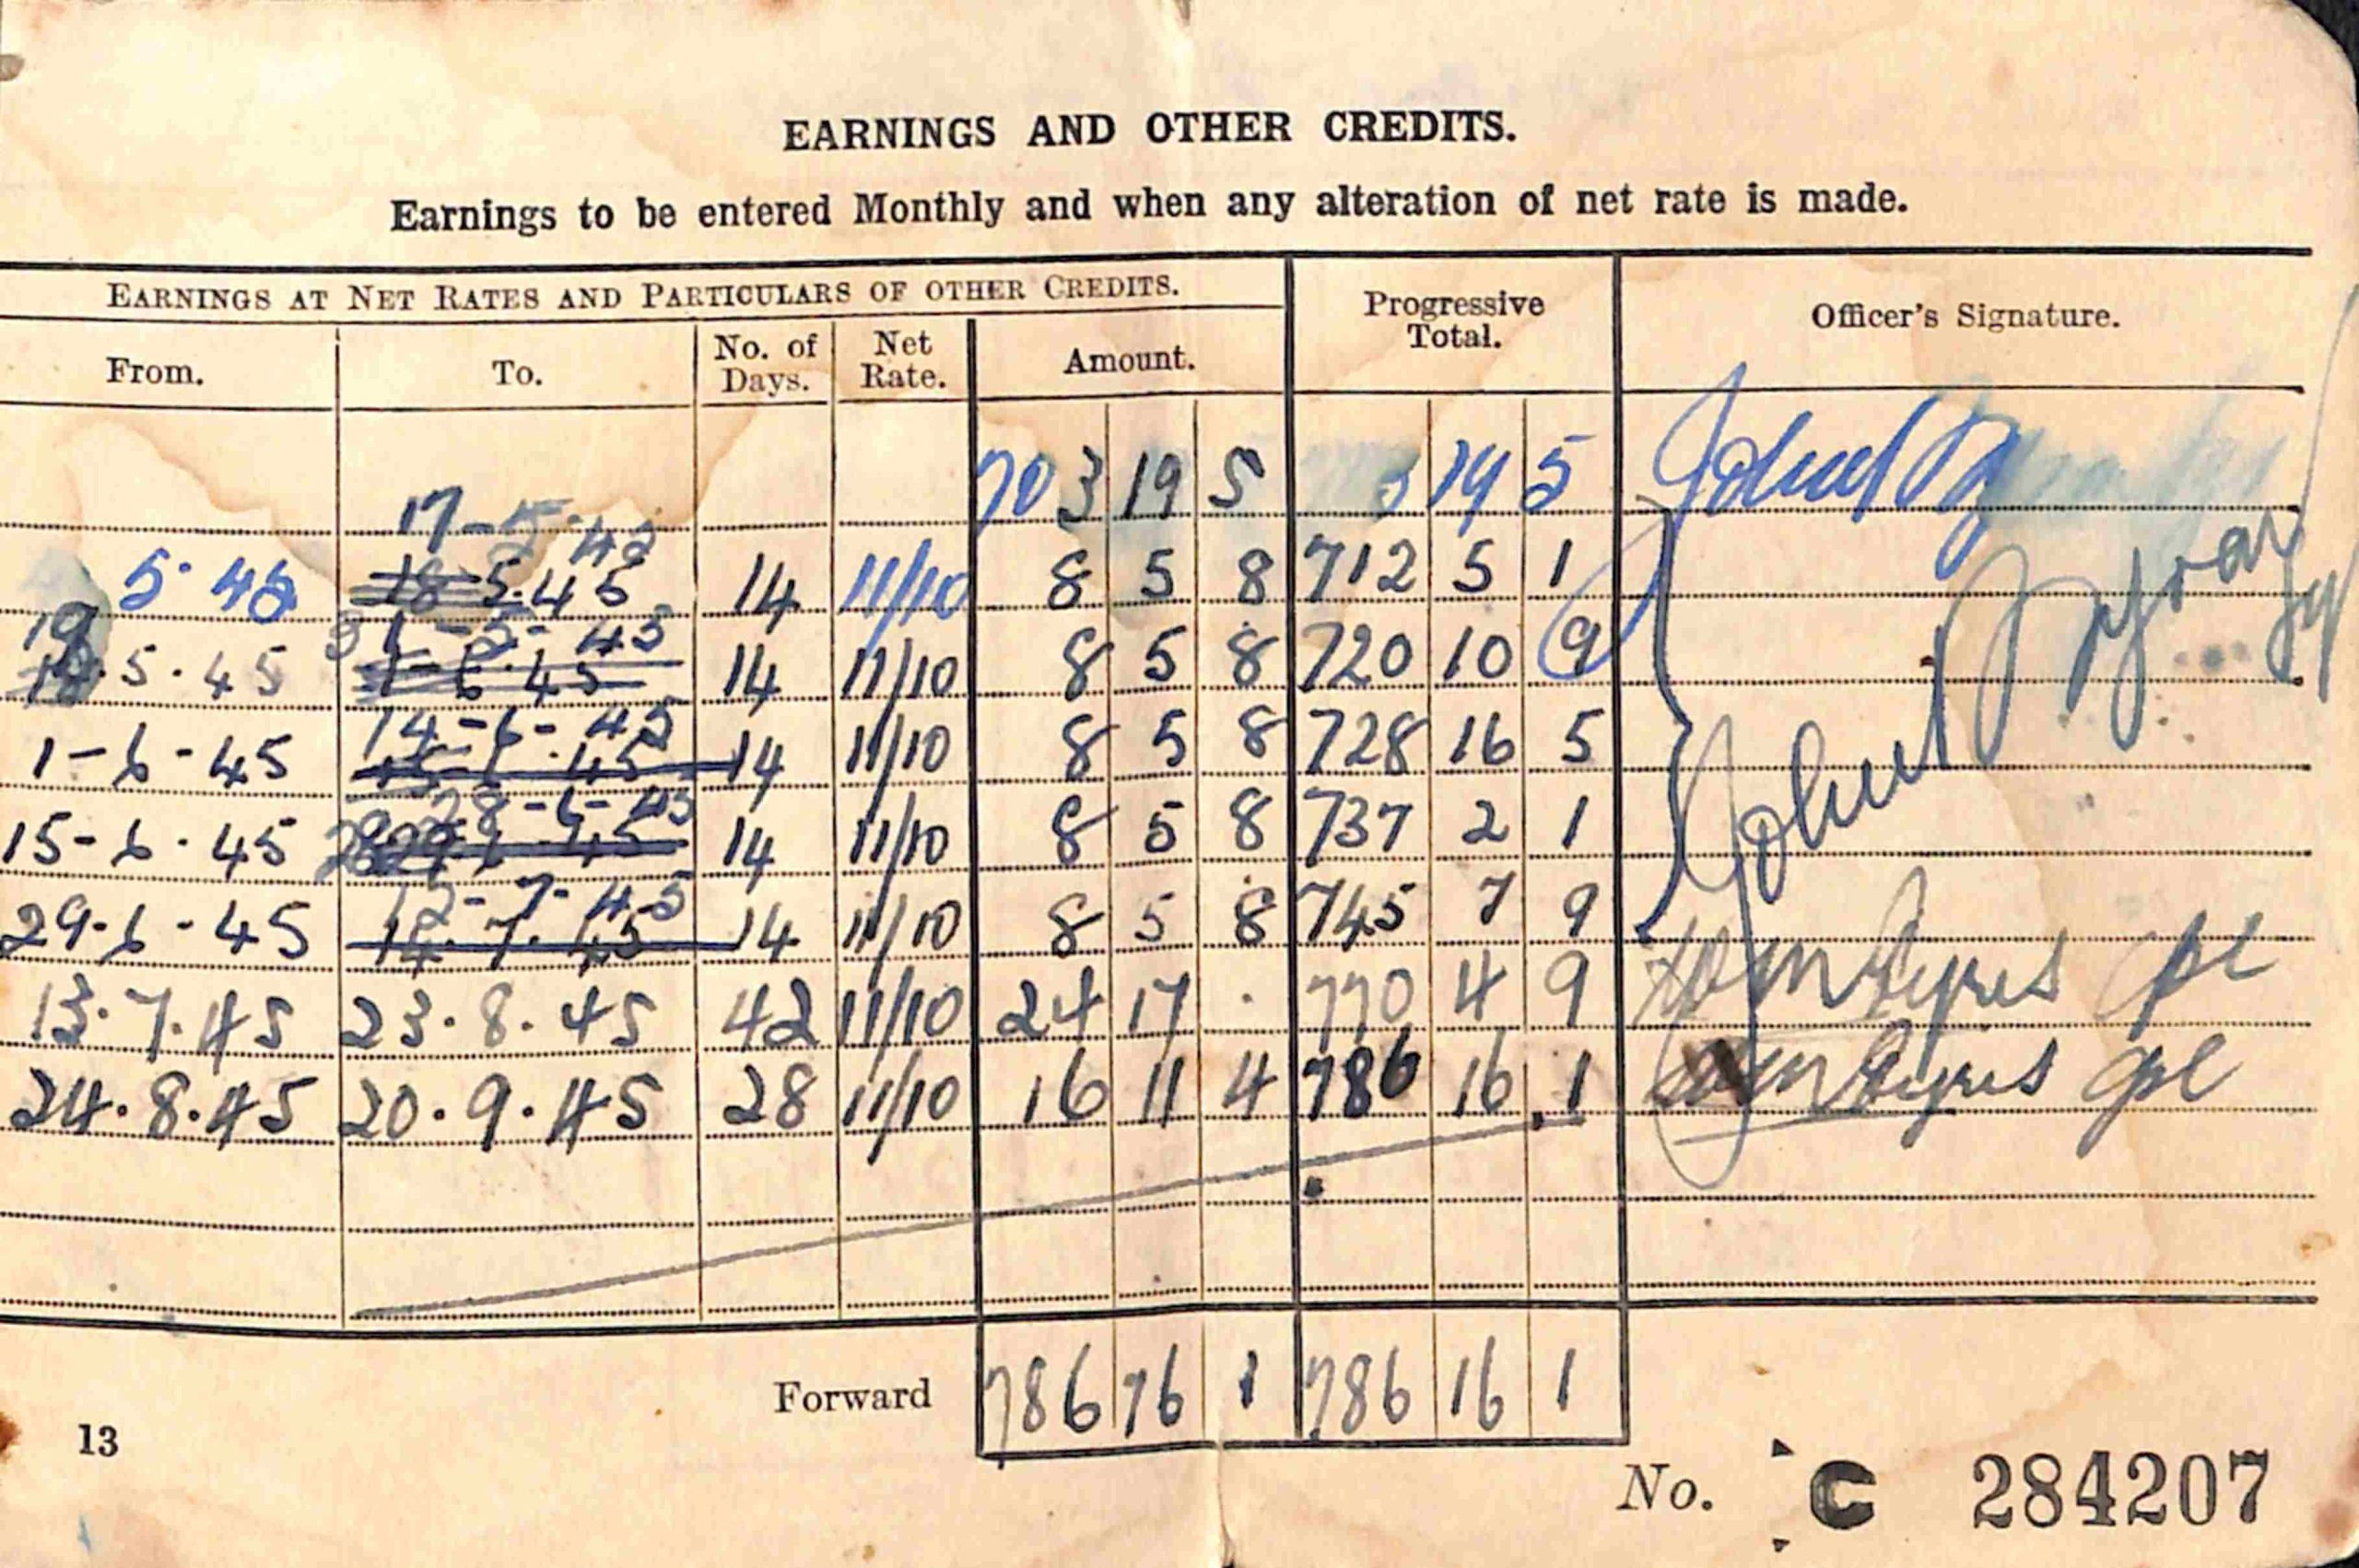 EARNINGS AND OTHER CREDITS.
Earnings to be entered Monthly and when any alteration of net rate is made.
EARNINGS AT NET RATES AND PARTICULARS OF OTHER CREDITS. Progressive Total. Officer's Signature.
From. To. No. of Days. Net Rate. Amount.
703 19 5 3 19 5
17-5-45
5·45 18·5·45 14 11/10 8 5 8 712 5 1
31-5-45
5·45 1-6·45 14 11/10 8 5 8 720 10 9
14-6-45
1-6-45 15-6·45 14 11/10 8 5 8 728 16 5
28-6-45
15-6·45 29·6·45 14 11/10 8 5 8 737 2 1
12-7-45
29·6-45 14·7·45 14 11/10 8 5 8 745 7 9
13·7·45 23·8·45 42 11/10 24 17 · 770 4 9
24·8·45 20·9·45 28 11/10 16 11 4 786 16 1
Forward 786 16 1 786 16 1
13
No. C 284207